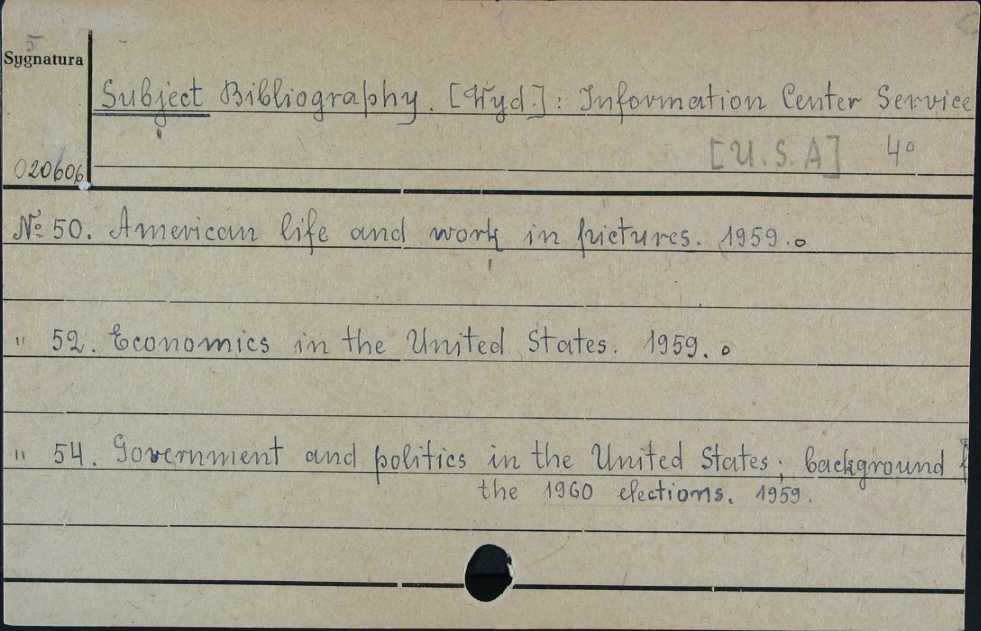 Sygnatura
Subject Bibliography. [Wyd.]: Information Center Service
[U.S.A] 4°
020606
№ 50. American life and work in pictures. 1959.
" 52. Economics in the United States. 1959.
" 54. Government and politics in the United States; background
the 1960 elections. 1959.